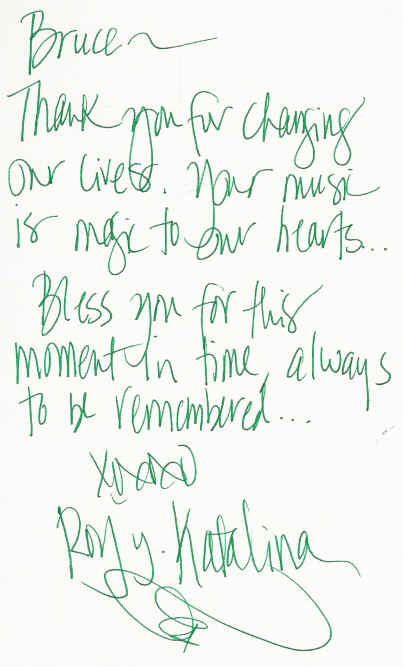 Bruce~
Thank you for changing
our lives. Your music
is magic to our hearts...
Bless you for this
moment in time, always
to be remembered...
xoxoxo
Rory y. Katalina